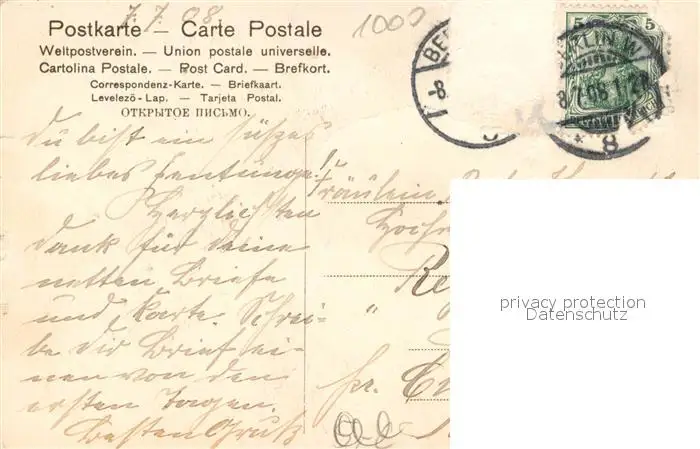 7.7.08
1000
Postkarte — Carte Postale
Weltpostverein. — Union postale universelle.
Cartolina Postale. — Post Card. — Brefkort.
Correspondenz-Karte. — Briefkaart.
Levelező-Lap. — Tarjeta Postal.
ОТКРЫТОЕ ПИСЬМО.
5 5
BE
BERLIN.W
8
8.7.08.1-2
* 8
Du bist ein süßes
liebes
Herzlichsten
Dank für deine
netten Briefe
und Karte. Schrei-
be dir Brief ei-
nen von den
ersten Tagen.
Besten Gruß
Fräulein
Hoch
Re
"
pr. Cr
privacy protection
Datenschutz